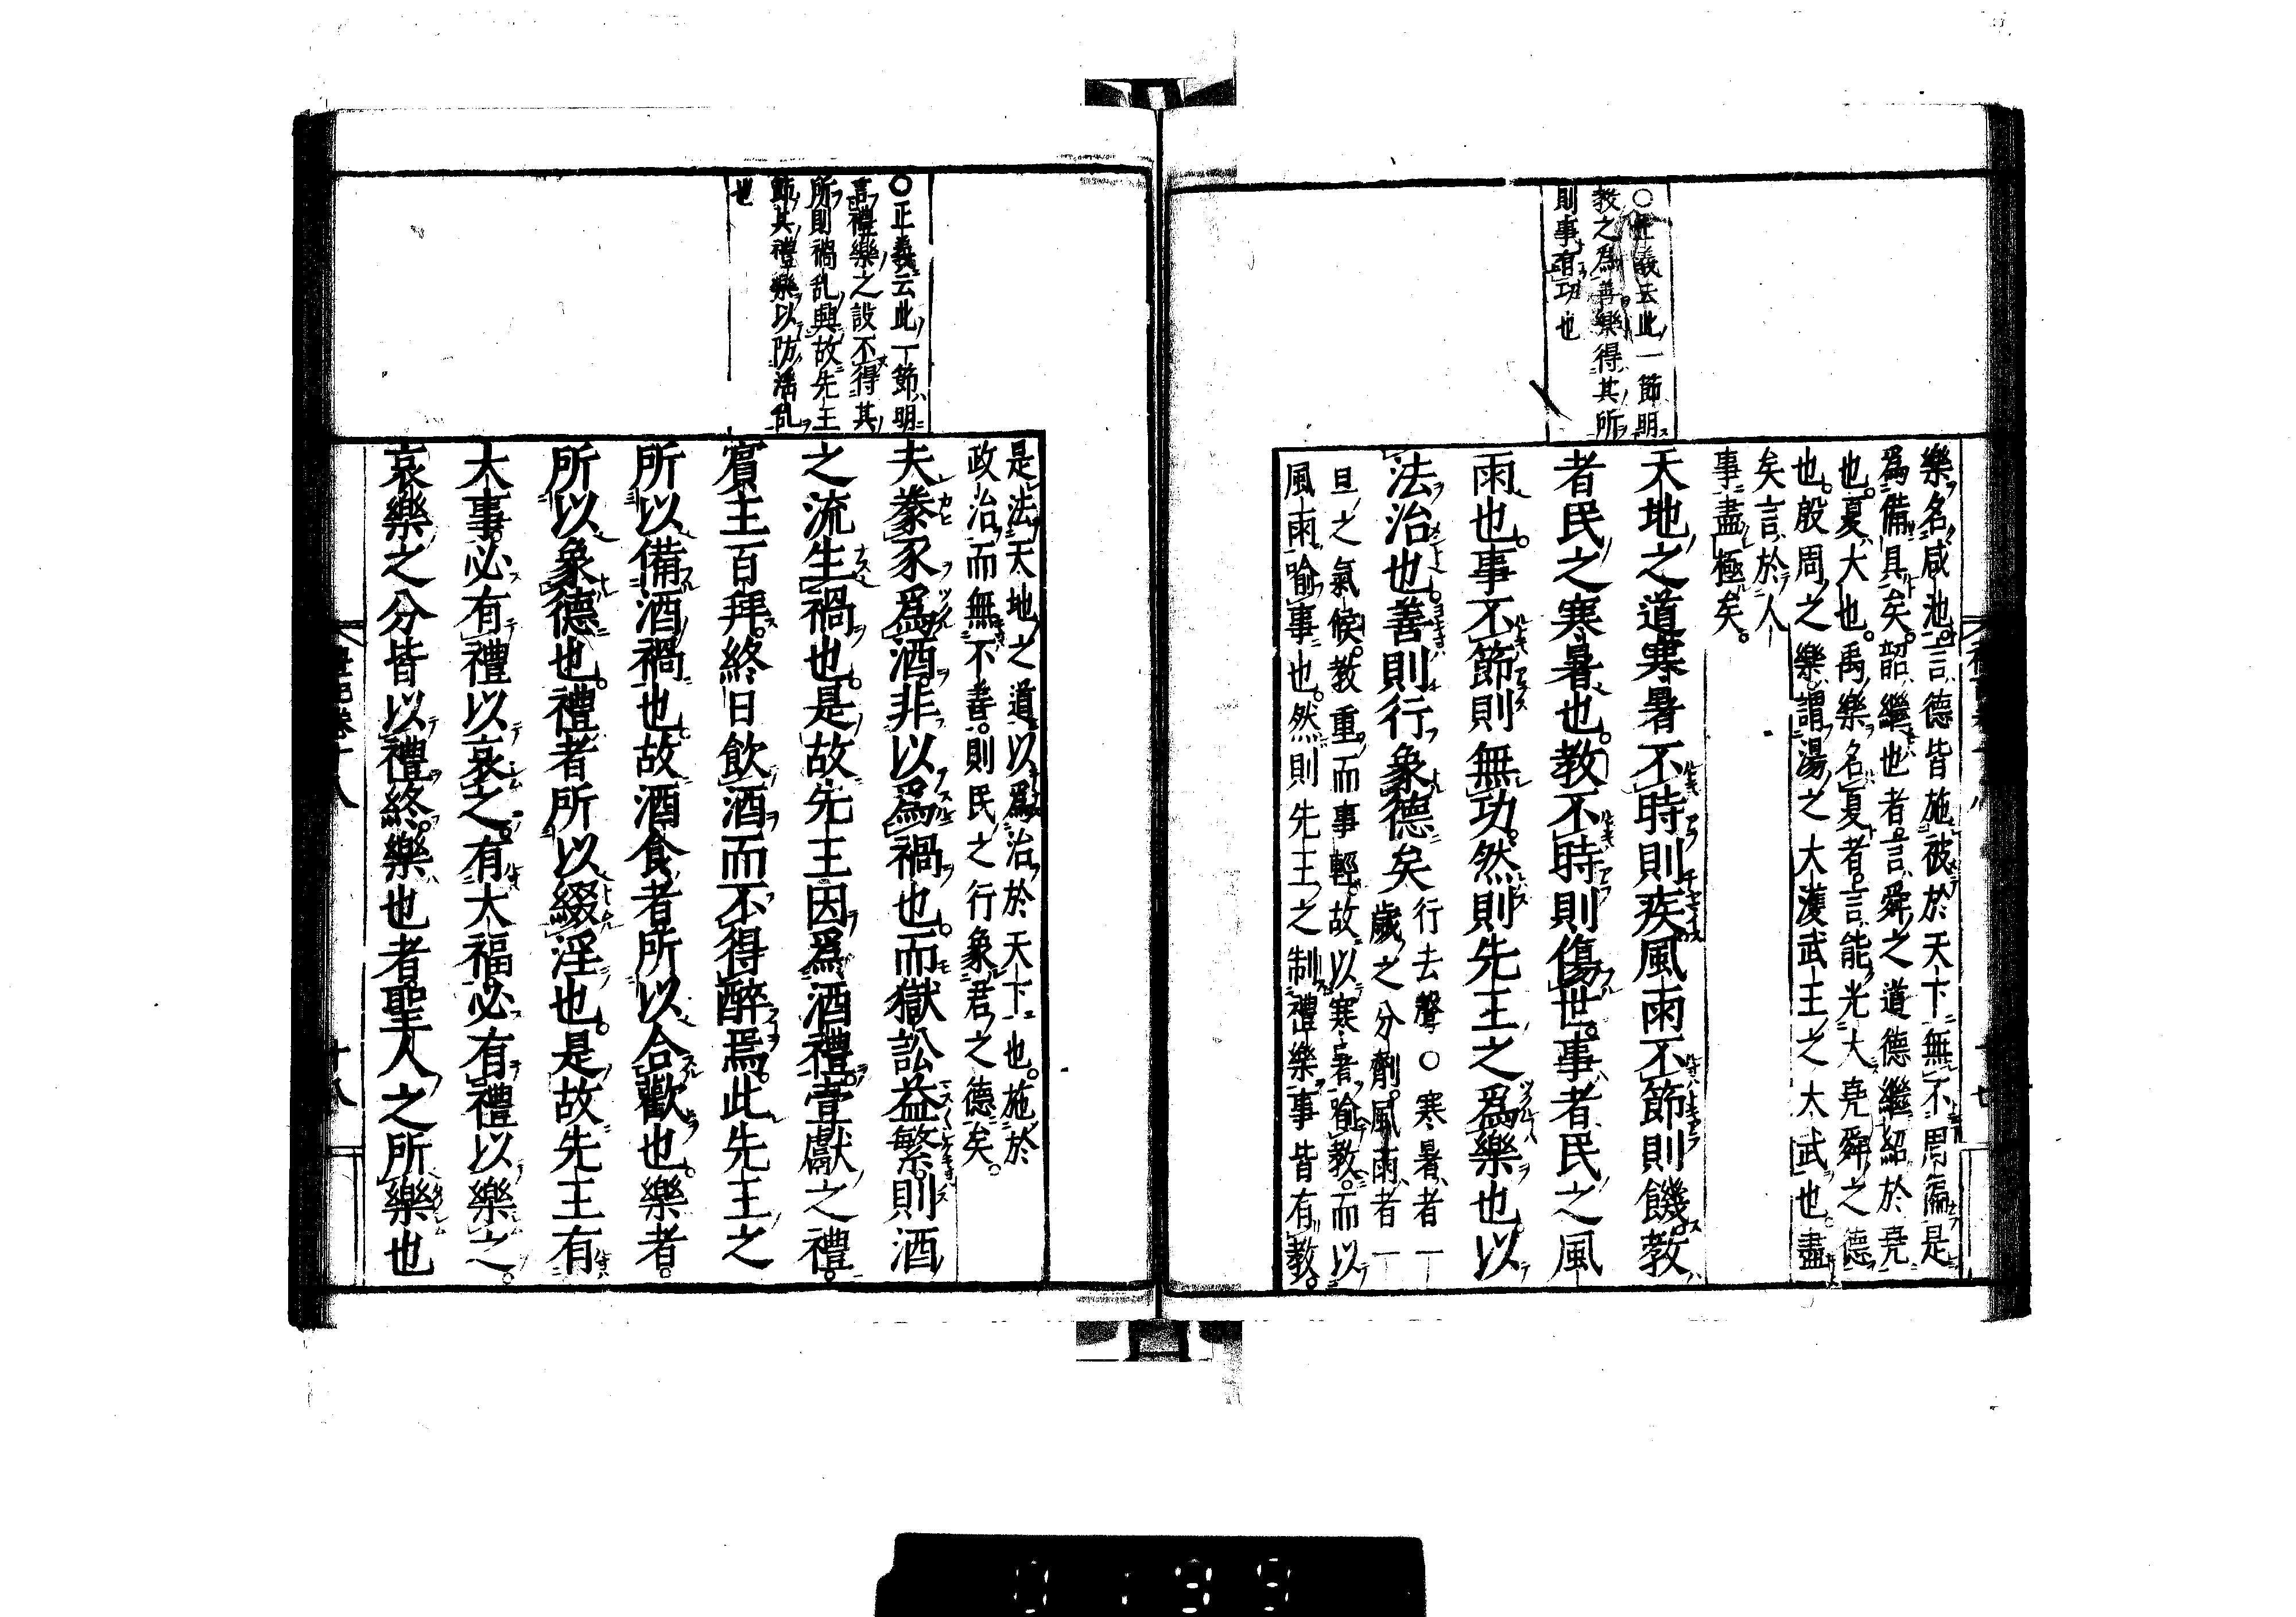 ○正義云此一節明
教之為善樂得其所
則事有功也
樂名咸池言德皆施被於天下無不周徧是
爲備具矣韶繼也者言舜之道德繼紹於堯
也夏大也禹樂名夏者言能光大堯舜之德
也殷周之樂謂湯之大濩武王之大武也盡
矣言於人
事盡極矣
天地之道寒暑不時則疾風雨不節則饑教
者民之寒暑也教不時則傷世事者民之風
雨也事不節則無功然則先王之爲樂也以
法治也善則行象德矣
行去聲○寒暑者一
歲之分劑風雨者一
旦之氣候教重而事輕故以寒暑喻教而以
風雨喻事也然則先王之制禮樂事皆有教
○正義云此一節明
言禮樂之設不得其
所則禍乱興故先王
節其禮樂以防淫乱
也
是法天地之道以爲治於天下也施於
政治而無不善則民之行象君之德矣
夫豢豕爲酒非以爲禍也而獄訟益繁則酒
之流生禍也是故先王因爲酒禮壹獻之禮
賓主百拜終日飲酒而不得醉焉此先王之
所以備酒禍也故酒食者所以合歡也樂者
所以象德也禮者所以綴淫也是故先王有
大事必有禮以哀之有大福必有禮以樂之
哀樂之分皆以禮終樂也者聖人之所樂也
十八